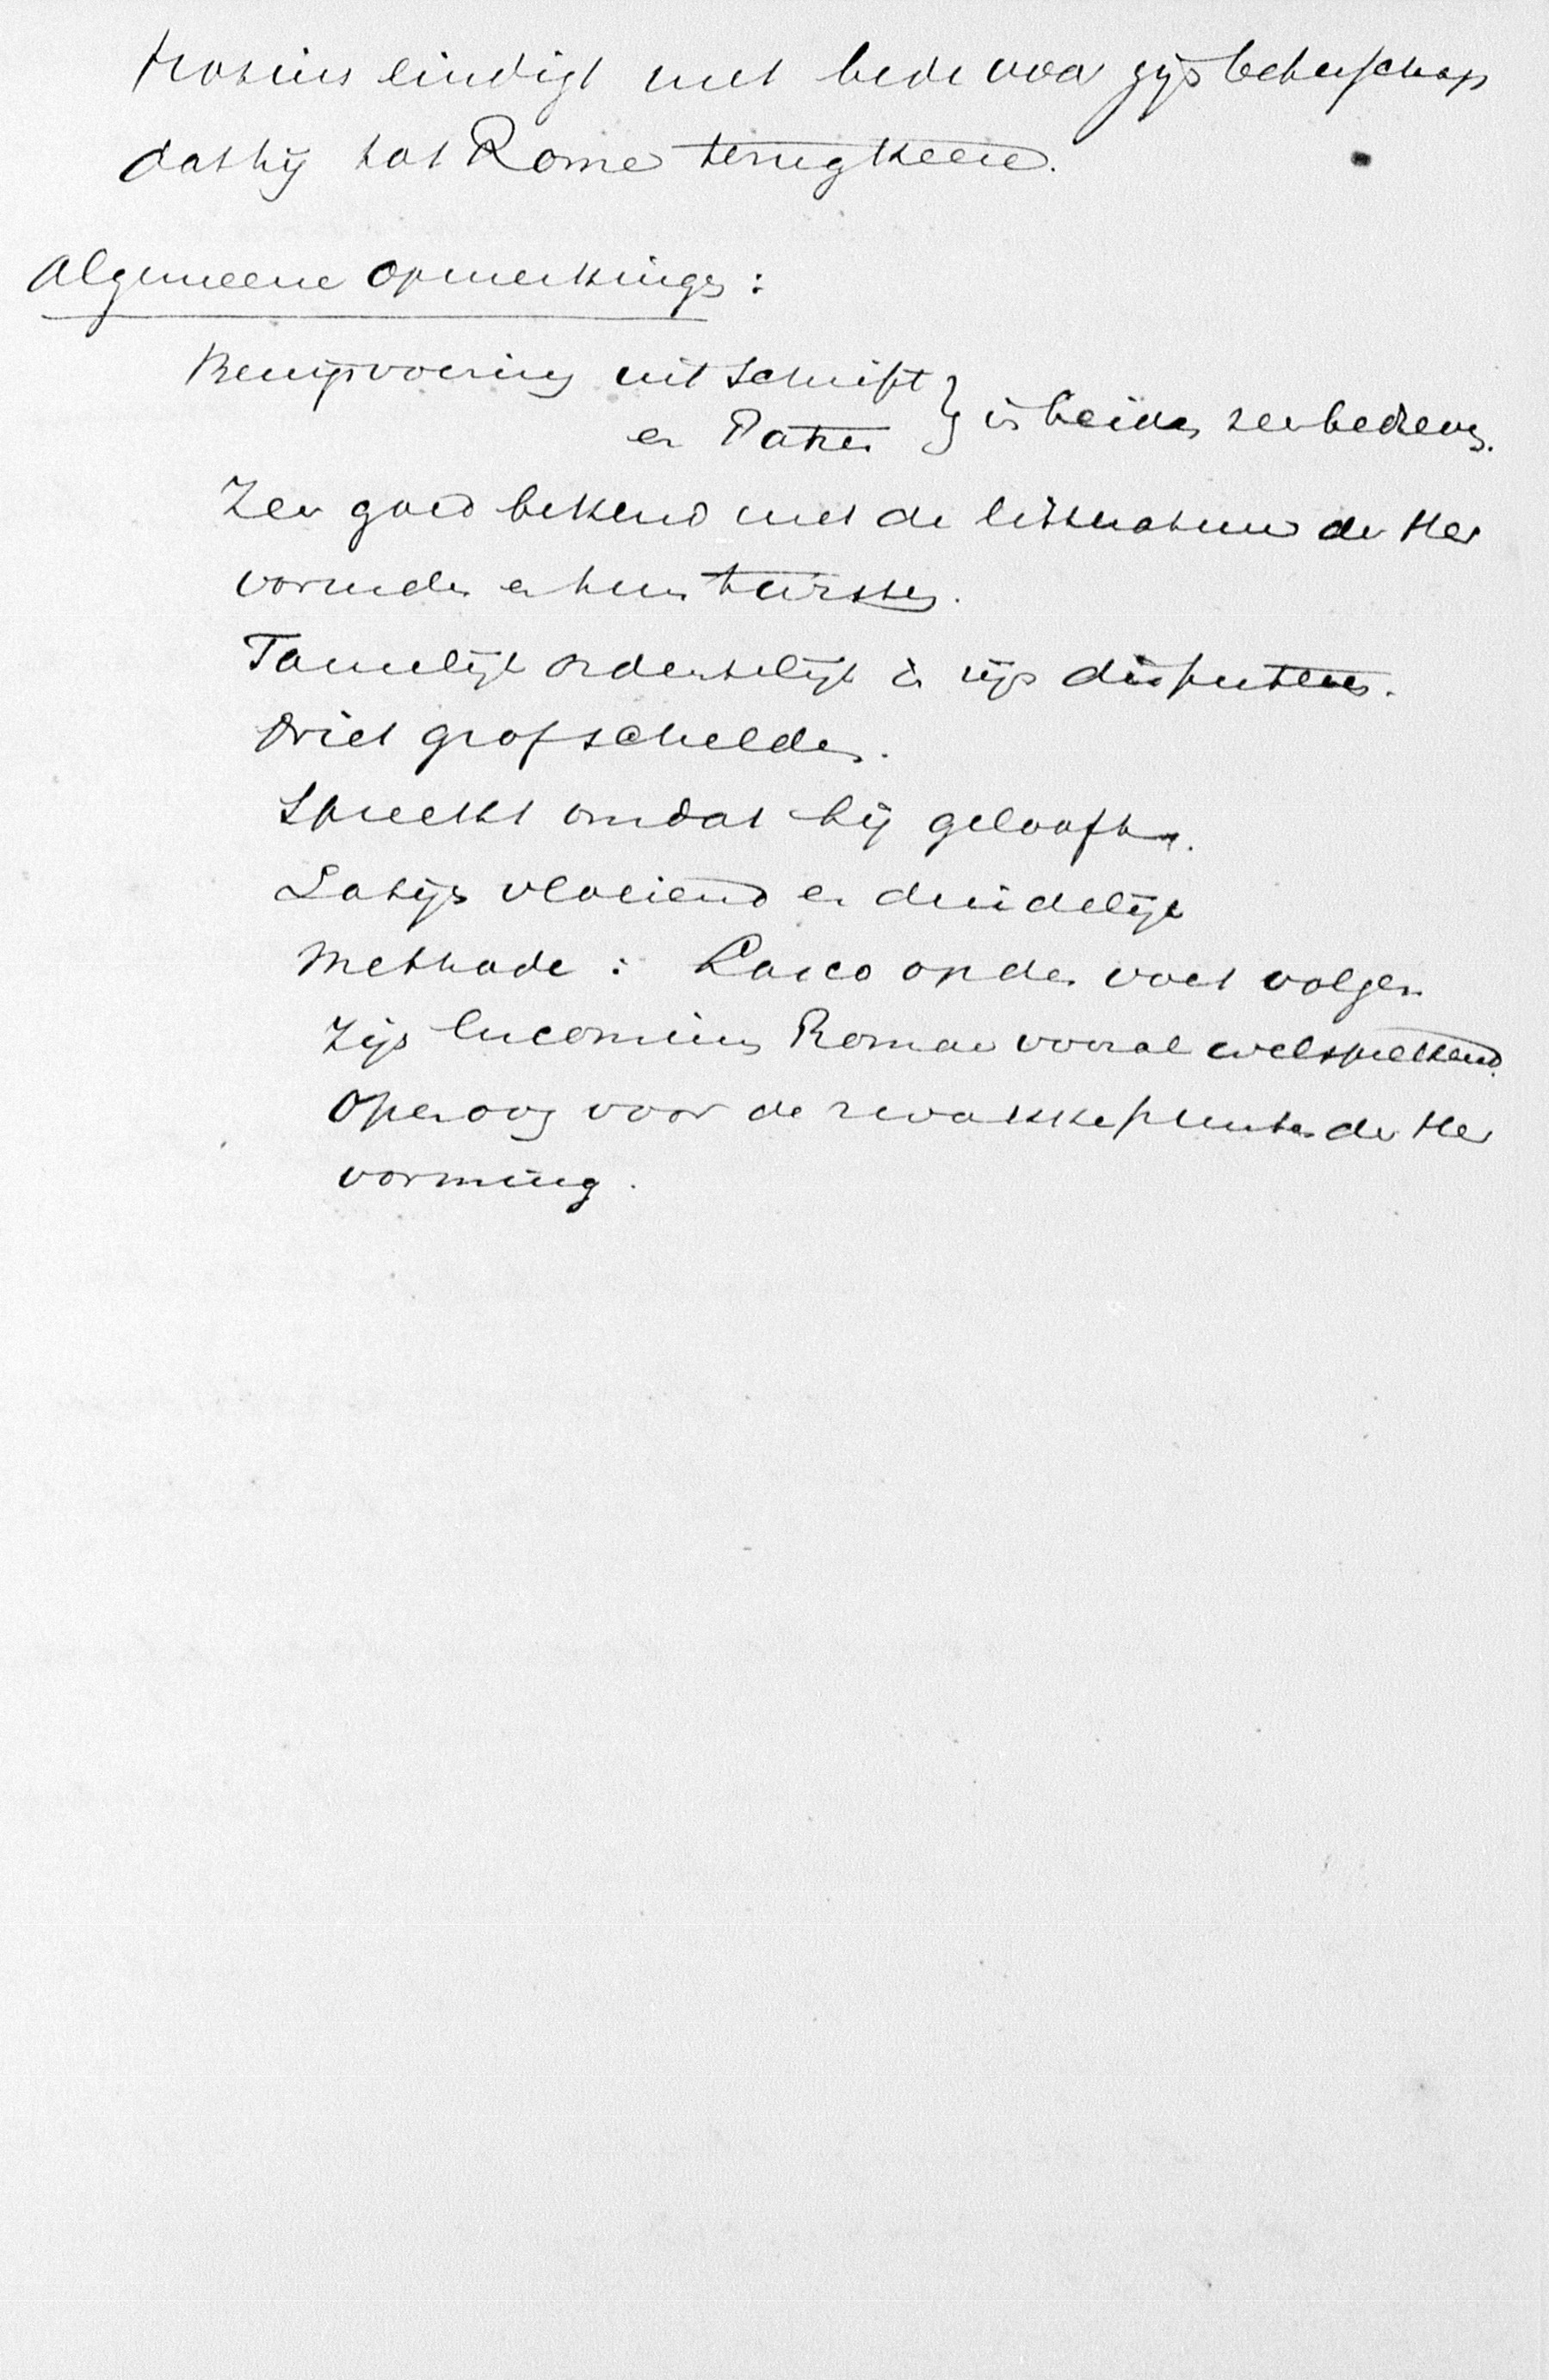 Hosius eindigt met bede voor zijn beterschap
dat hij tot Rome terugkeere.
Algemeene opmerkingen:
Bewijsvoering uit Schrift
en Patres } in beiden zeer bedreven.
Zeer goed bekend met de litteratuur der Her
vormden en hun twisten.
Tamelijk ordentelijk in zijn disputeeren.
Niet grof schelden.
Spreekt omdat hij gelooft.
Latijn vloeiend en duidelijk
Methode: Lasco op den voet volgen
Zijn Encomium Romae vooral welsprekend.
Open oog voor de zwakke punten der Her
vorming.